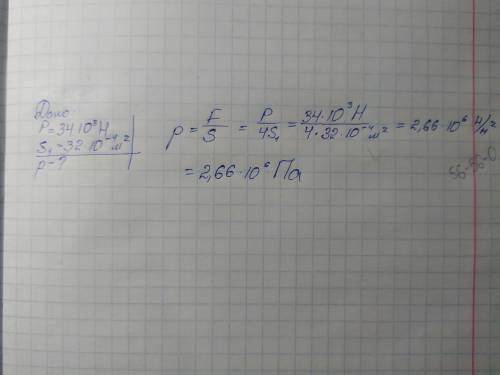 Дано:
P = 34·10³Н
S₁ = 32·10⁻⁴м²
p - ?
p = F/S = P/4S₁ = 34·10³Н/4·32·10⁻⁴м² = 2,66·10⁶ Н/м²
= 2,66·10⁶ Па